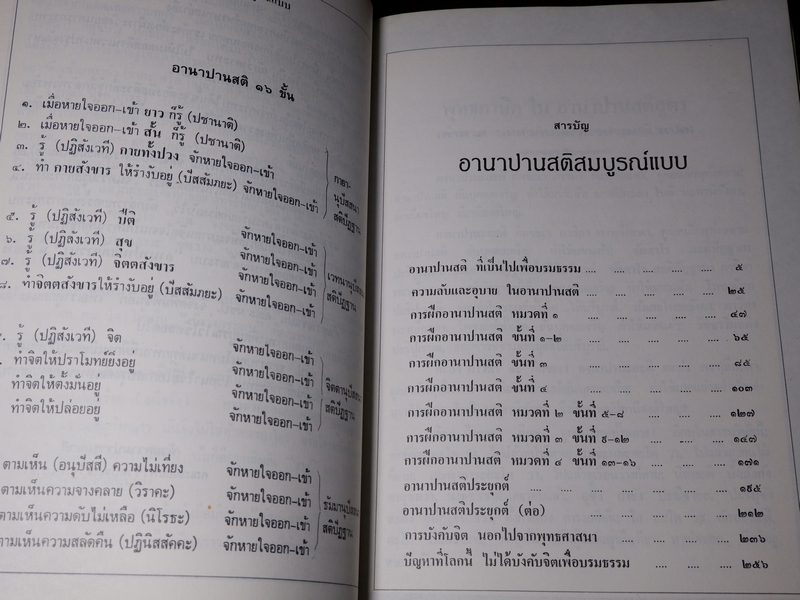 แบบ
อานาปานสติ ๑๖ ขั้น
๑. เมื่อหายใจออก-เข้า ยาว ก็รู้ (ปชานาติ)
๒. เมื่อหายใจออก-เข้า สั้น ก็รู้ (ปชานาติ)
๓. รู้ (ปฏิสังเวที) กายทั้งปวง จักหายใจออก-เข้า
๔. ทำ กายสังขาร ให้รำงับอยู่ (ปัสสัมภยะ) จักหายใจออก-เข้า
กายา-
นุปัสสนา
สติปัฏฐาน
๕. รู้ (ปฏิสังเวที) ปีติ จักหายใจออก-เข้า
๖. รู้ (ปฏิสังเวที) สุข จักหายใจออก-เข้า
๗. รู้ (ปฏิสังเวที) จิตตสังขาร จักหายใจออก-เข้า
๘. ทำจิตตสังขารให้รำงับอยู่ (ปัสสัมภยะ) จักหายใจออก-เข้า
เวทนานุปัสสนา
สติปัฏฐาน
รู้ (ปฏิสังเวที) จิต จักหายใจออก-เข้า
ทำจิตให้ปราโมทย์ยิ่งอยู่ จักหายใจออก-เข้า
ทำจิตให้ตั้งมั่นอยู่ จักหายใจออก-เข้า
ทำจิตให้ปล่อยอยู่ จักหายใจออก-เข้า
จิตตานุปัสสนา
สติปัฏฐาน
ตามเห็น (อนุปัสสี) ความไม่เที่ยง จักหายใจออก-เข้า
ตามเห็นความจางคลาย (วิราคะ) จักหายใจออก-เข้า
ตามเห็นความดับไม่เหลือ (นิโรธะ) จักหายใจออก-เข้า
ตามเห็นความสลัดคืน (ปฏินิสสัคคะ) จักหายใจออก-เข้า
ธัมมานุปัสสนา
สติปัฏฐาน
สารบัญ
อานาปานสติสมบูรณ์แบบ
อานาปานสติ ที่เป็นไปเพื่อบรมธรรม .... .... .... .... .... ๕
ความลับและอุบาย ในอานาปานสติ .... .... .... .... .... ๒๕
การฝึกอานาปานสติ หมวดที่ ๑ .... .... .... .... ๔๗
การฝึกอานาปานสติ ขั้นที่ ๑-๒ .... .... .... .... ๖๕
การฝึกอานาปานสติ ขั้นที่ ๓ .... .... .... .... ๘๕
การฝึกอานาปานสติ ขั้นที่ ๔ .... .... .... .... ๑๐๓
การฝึกอานาปานสติ หมวดที่ ๒ ขั้นที่ ๕-๘ .... .... .... ๑๒๗
การฝึกอานาปานสติ หมวดที่ ๓ ขั้นที่ ๙-๑๒ .... .... .... ๑๔๗
การฝึกอานาปานสติ หมวดที่ ๔ ขั้นที่ ๑๓-๑๖ .... .... .... ๑๗๑
อานาปานสติประยุกต์ .... .... .... .... .... ๑๙๕
อานาปานสติประยุกต์ (ต่อ) .... .... .... .... ๒๑๒
การบังคับจิต นอกไปจากพุทธศาสนา .... .... .... .... ๒๓๖
ปัญหาที่โลกนี้ ไม่ได้บังคับจิตเพื่อบรมธรรม .... .... .... ๒๕๖